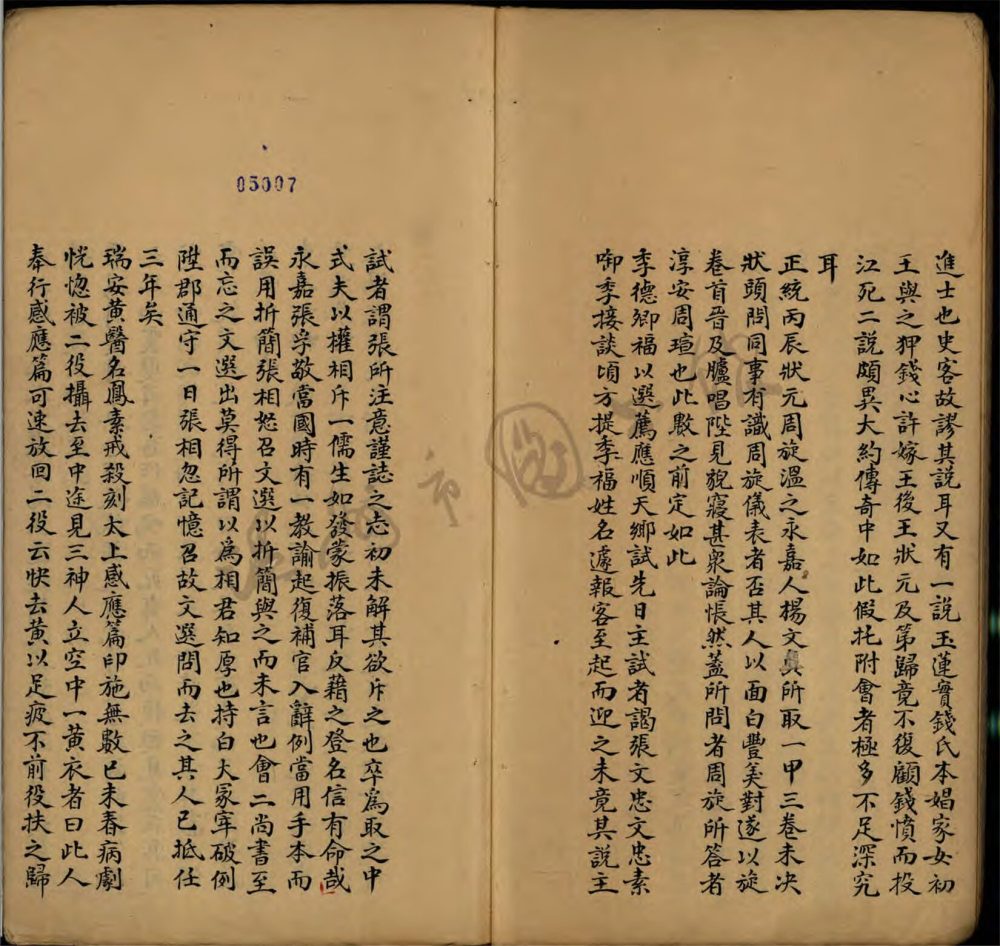 進士也史客故謬其說耳又有一說玉蓮實錢氏本娼家女初
王與之狎錢心許嫁王後王狀元及第歸竟不復顧錢憤而投
江死二說頗異大約傳奇中如此假托附會者極多不足深究
耳
正統丙辰狀元周旋溫之永嘉人楊文所取一甲三卷未決
狀頭問同事有識周旋儀表者否其人以面白豐美對遂以旋
卷首晉及臚唱陛見貌寢甚衆論悵然蓋所問者周旋所答者
淳安周瑄也此數之前定如此
季德卿福以選薦應順天鄉試先日主試者謁張文忠文忠素
啣季接談頃方提季福姓名遽報客至起而迎之未竟其說主
試者謂張所注意謹誌之志初未解其欲斥之也卒爲取之中
式夫以權相斥一儒生如發蒙振落耳反藉之登名信有命哉
永嘉張孚敬當國時有一教諭起復補官入辭例當用手本而
誤用折簡張相怒召文選以折簡與之而未言也會二尚書至
而忘之文選出莫得所謂以爲相君知厚也持白大冢宰破例
陞郡通守一日張相忽記憶召故文選問而去之其人已抵任
三年矣
瑞安黃醫名鳳素戒殺刻太上感應篇印施無數已未春病劇
恍惚被二役攝去至中途見三神人立空中一黃衣者曰此人
奉行感應篇可速放回二役云快去黃以足疲不前役扶之歸
05097
市